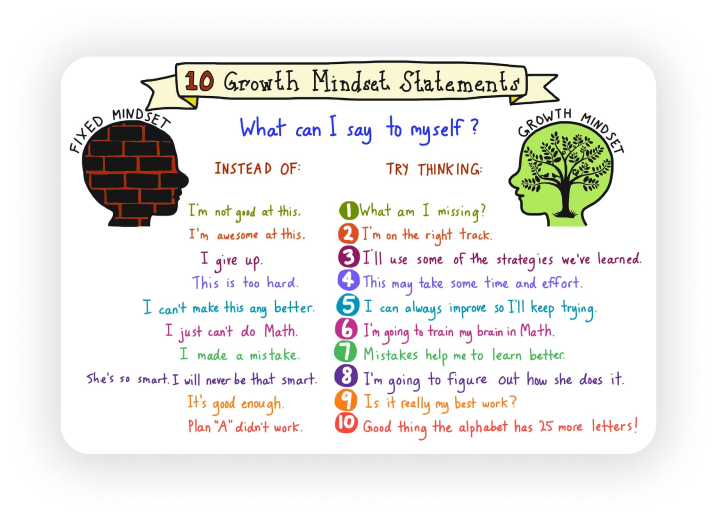 10 Growth Mindset Statements
FIXED MINDSET
What can I say to myself?
GROWTH MINDSET
INSTEAD OF: TRY THINKING:
I'm not good at this. 1 What am I missing?
I'm awesome at this. 2 I'm on the right track.
I give up. 3 I'll use some of the strategies we've learned.
This is too hard. 4 This may take some time and effort.
I can't make this any better. 5 I can always improve so I'll keep trying.
I just can't do Math. 6 I'm going to train my brain in Math.
I made a mistake. 7 Mistakes help me to learn better.
She's so smart. I will never be that smart. 8 I'm going to figure out how she does it.
It's good enough. 9 Is it really my best work?
Plan "A" didn't work. 10 Good thing the alphabet has 25 more letters!